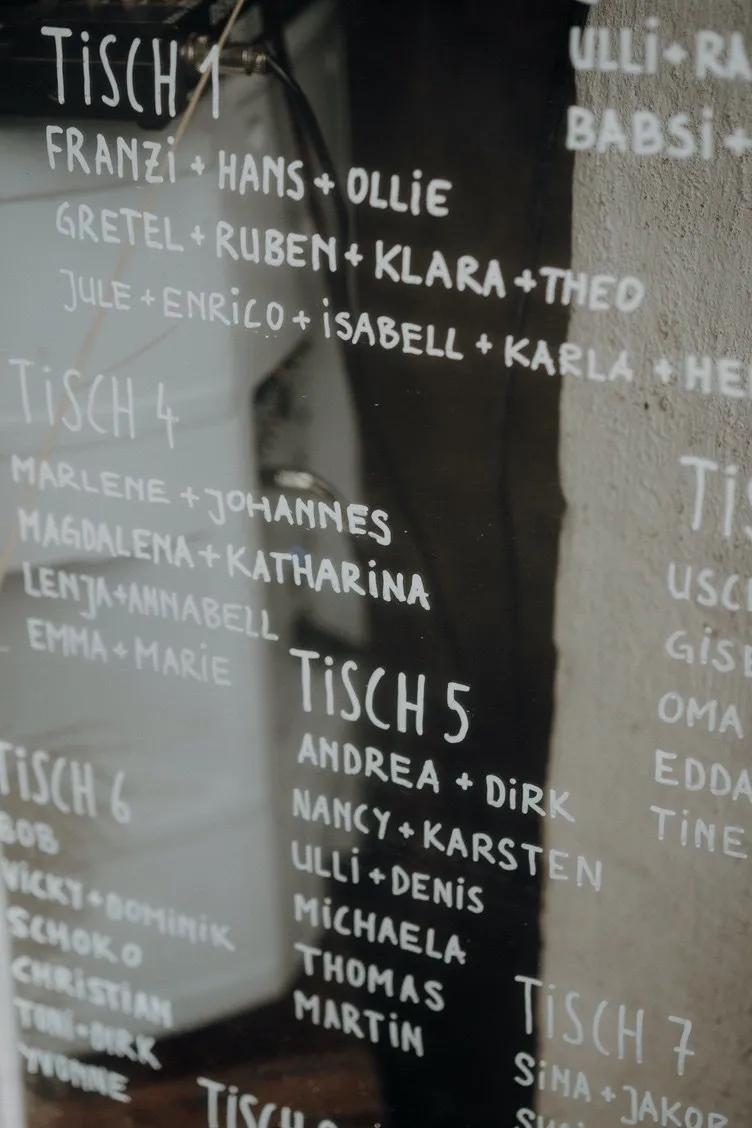 TiSCH 1
FRANZi + HANS + OLLiE
GRETEL + RUBEN + KLARA + THEO
JULE + ENRiCO + iSABELL + KARLA +
ULLi +
BABSi +
TiSCH 4
MARLENE + JOHANNES
MAGDALENA + KATHARiNA
LENJA + ANNABELL
EMMA + MARiE
OMA
EDDA
TiNE
TiSCH 5
ANDREA + DiRK
NANCY + KARSTEN
ULLi + DENiS
MiCHAELA
THOMAS
MARTiN
TiSCH 6
BOB
ViCKY + DOMiNiK
SCHOKO
CHRiSTiAN
TONi + DiRK
YVONNE
TiSCH 7
SiNA + JAKOB
TiSCH